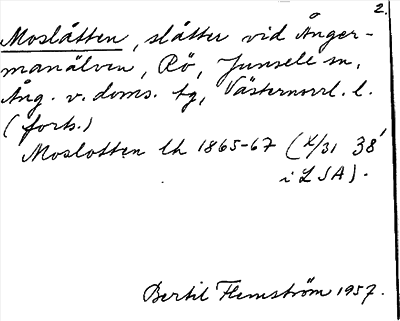 2.
Moslåtten, slåtter vid Ånger-
manälven, Rö, Junsele sn,
Ång. v. doms. tg, Västernorrl. l.
(forts.)
Moslotten lh 1865-67 (X/31 38'
i LSA).
Bertil Flemström 1957.